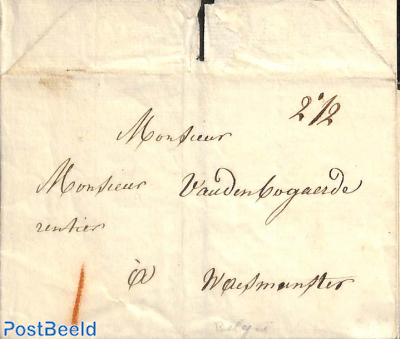 2 1/2
Monsieur
Monsieur Vanden bogaerde
rentier
à Waesmunster
België
PostBeeld